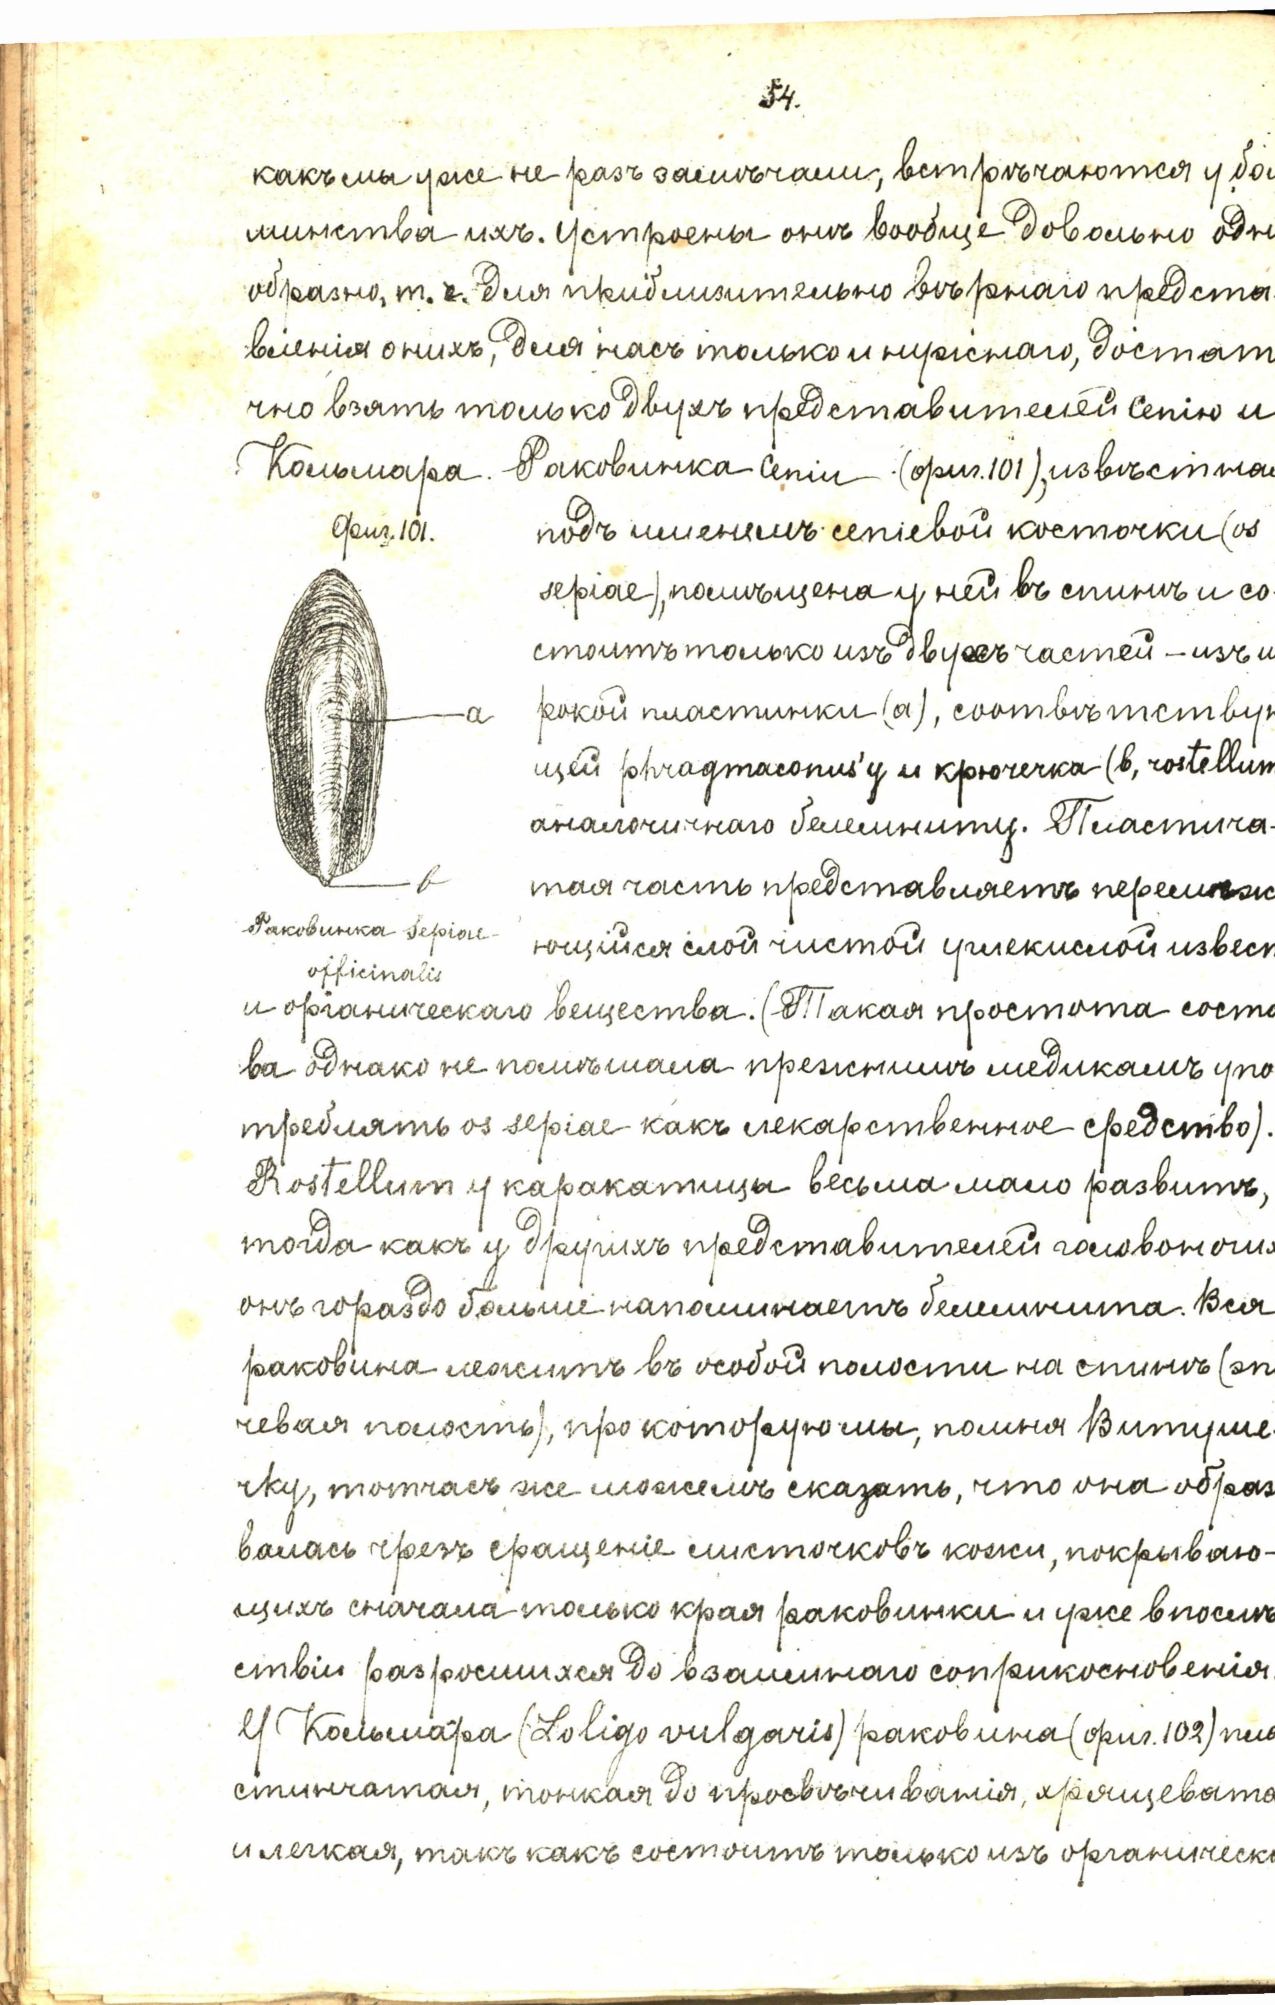 54.
какъ мы уже не разъ замѣчали, встрѣчаются у бо
шинства ихъ. Устроены онѣ вообще довольно одн
образно, т. ч. для приблизительно вѣрнаго предста
вленія о нихъ, для насъ только и нужнаго, достат
чно взять только двухъ представителей Сепію и
Кальмара. Раковинка Сепіи (фиг. 101), извѣстная
Фиг. 101.
подъ именемъ сепіевой косточки (os
sepiae), помѣщена у ней въ спинѣ и со-
стоитъ только изъ двухъ частей – изъ ш
рокой пластинки (а), соотвѣтствую
а
щей phragmaconus'у и крючечка (b, rostellum
аналогичнаго белемниту. Пластинча-
тая часть представляетъ перемеж
b
ющійся слой чистой углекислой извест
Раковинка Sepiae
officinalis
и органическаго вещества. (Такая простота соста
ва однако не помѣшала прежнимъ медикамъ упо
треблять os sepiae какъ лекарственное средство).
Rostellum у каракатицы весьма мало развитъ,
тогда какъ у другихъ представителей головоногих
онъ гораздо больше напоминаетъ белемнита. Вся
раковина лежитъ въ особой полости на спинѣ (эп
чевая полость), про которую мы, помня Витуше-
чку, тотчасъ же можемъ сказать, что она образ
валась чрезъ сращеніе листочковъ кожи, покрываю-
щихъ сначала только края раковинки и уже впослѣ
ствіи разросшихся до взаимнаго соприкосновенія.
У Кальмара (Loligo vulgaris) раковина (фиг. 102) пла
стинчатая, тонкая до просвѣчиванія, хрящевата
и легкая, такъ какъ состоитъ только изъ органическо